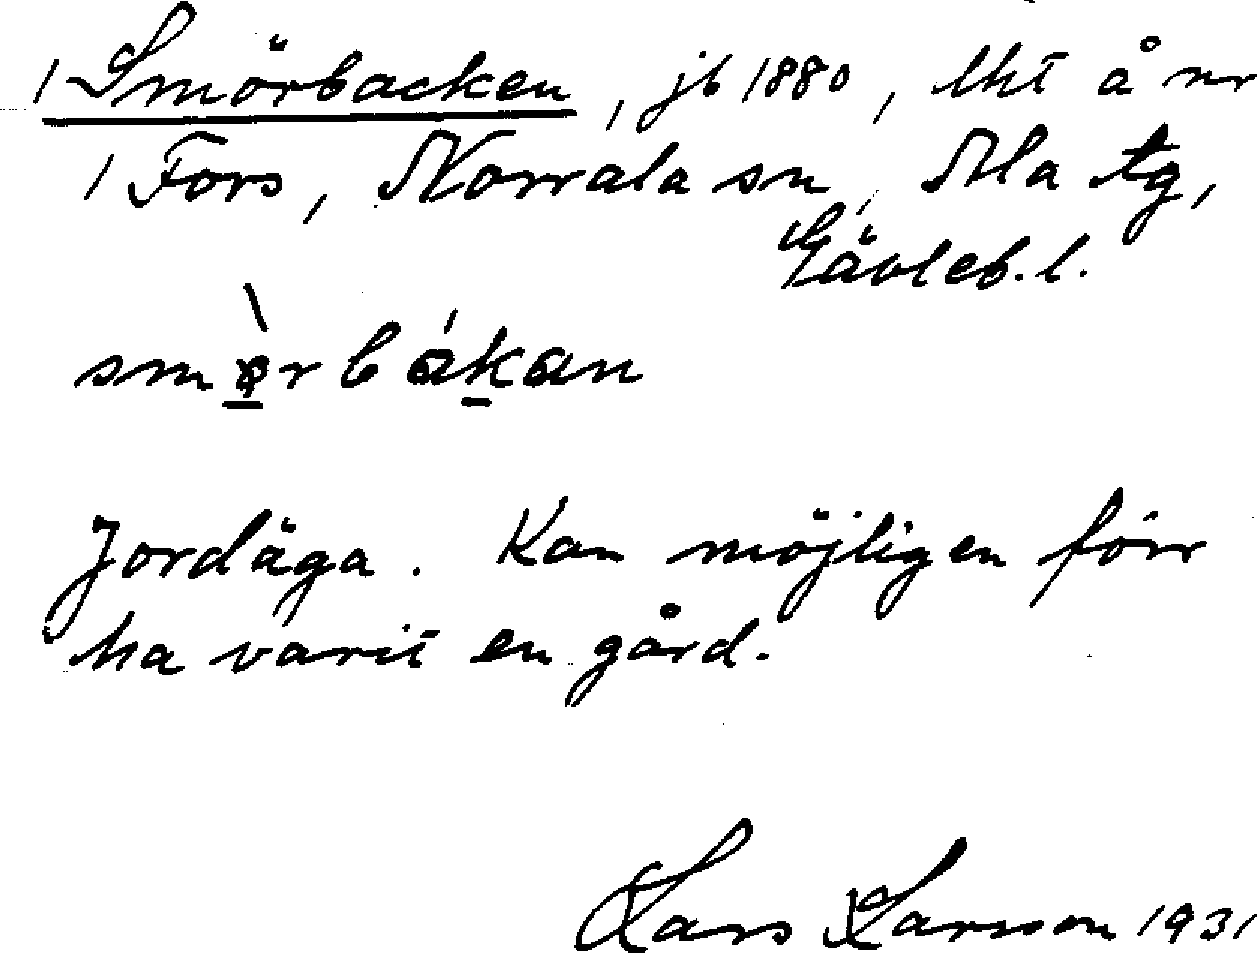 / Smörbacken, jb 1880, lht å nr
1 Fors, Norrala sn, Ala tg,
Gävleb. l.
smørbakan
Jordäga. Kan möjligen förr
ha varit en gård.
Lars Larsson 1931